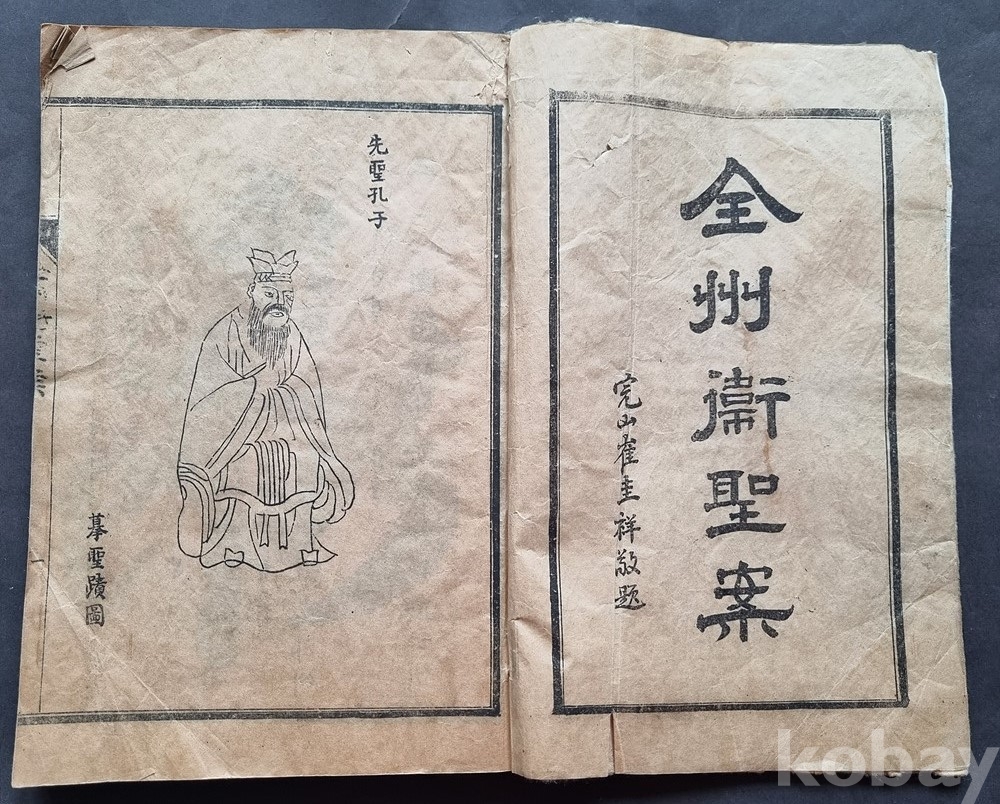 全州衛聖案
完山崔圭祥敬題
先聖孔子
摹聖蹟圖
kobay